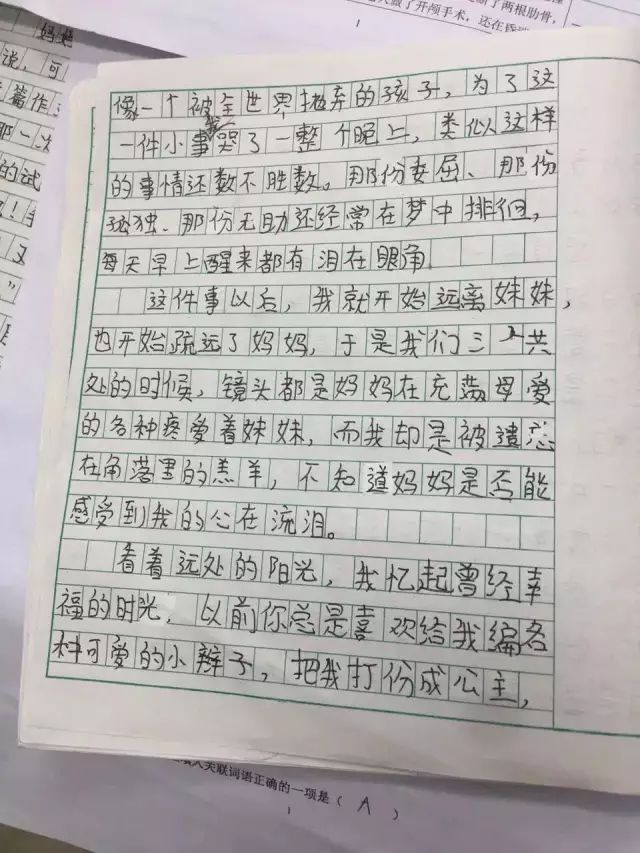 了两根肋骨，
做了开颅手术，还在昏
1
妈妈
说，可
篇作
那一次
的试
！
又
”
像一个被全世界抛弃的孩子，为了这
一件小事我哭了一整个晚上，类似这样
的事情还数不胜数。那份委屈、那份
孤独、那份无助还经常在梦中排徊，
每天早上醒来都有泪在眼角
这件事以后，我就开始远离妹妹，
也开始疏远了妈妈，于是我们三人共
处的时候，镜头都是妈妈在充满母爱
的各种疼爱着妹妹，而我却是被遗忘
在角落里的羔羊，不知道妈妈是否能
感受到我的心在流泪。
看着远处的阳光，我忆起曾经幸
福的时光，以前你总是喜欢给我编各
种可爱的小辫子，把我打份成公主，
填入关联词语正确的一项是（ A ）
1